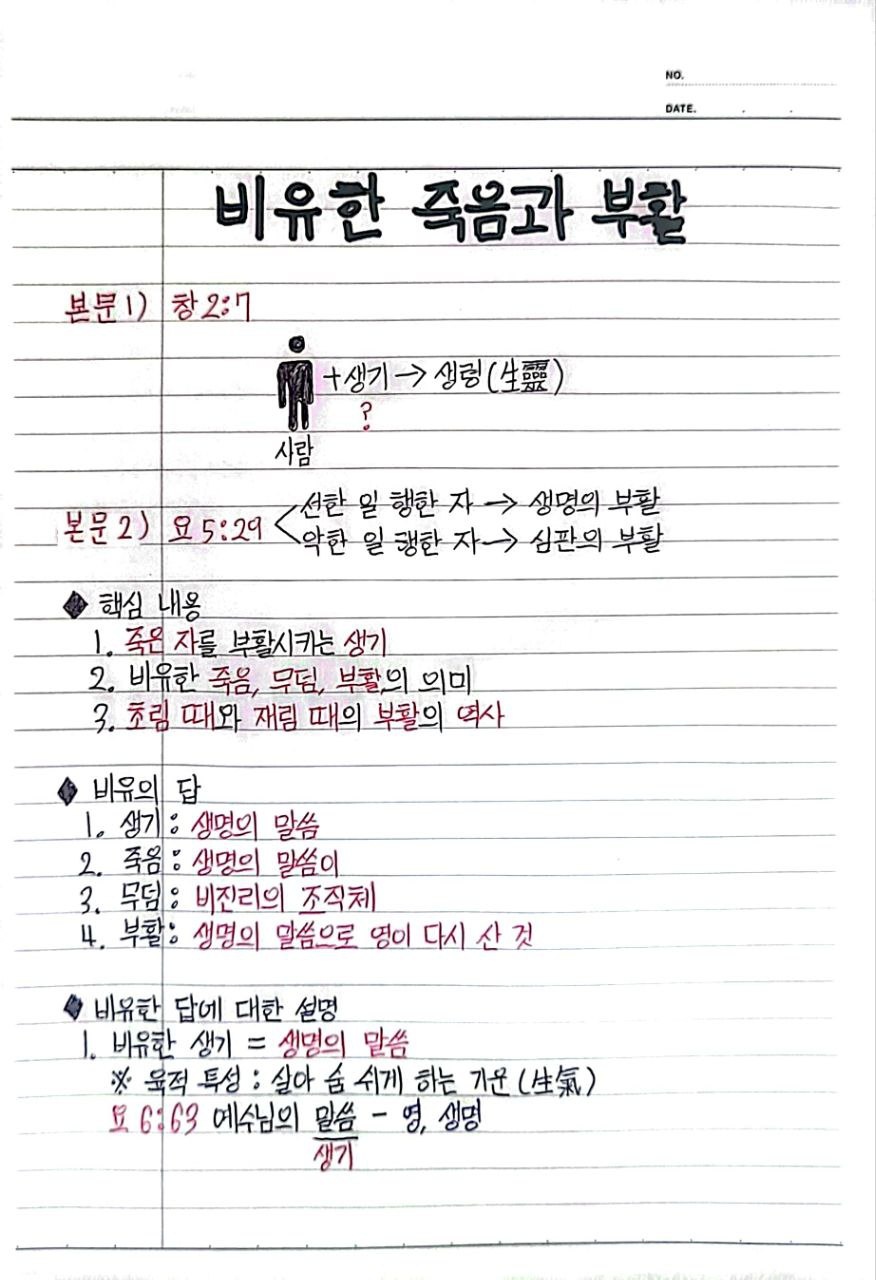 NO.
DATE. . .
비유한 죽음과 부활
본문 1) 창 2:7
+ 생기 → 생령 (生靈)
?
사람
본문 2) 요 5:29 < 선한 일 행한 자 → 생명의 부활
악한 일 행한 자 → 심판의 부활
◆ 핵심 내용
1. 죽은 자를 부활시키는 생기
2. 비유한 죽음, 무덤, 부활의 의미
3. 초림 때와 재림 때의 부활의 역사
◆ 비유의 답
1. 생기 : 생명의 말씀
2. 죽음 : 생명의 말씀이
3. 무덤 : 비진리의 조직체
4. 부활 : 생명의 말씀으로 영이 다시 산 것
◆ 비유한 답에 대한 설명
1. 비유한 생기 = 생명의 말씀
※ 육적 특성 : 살아 숨 쉬게 하는 기운 (生氣)
요 6:63 예수님의 말씀 - 영, 생명
생기